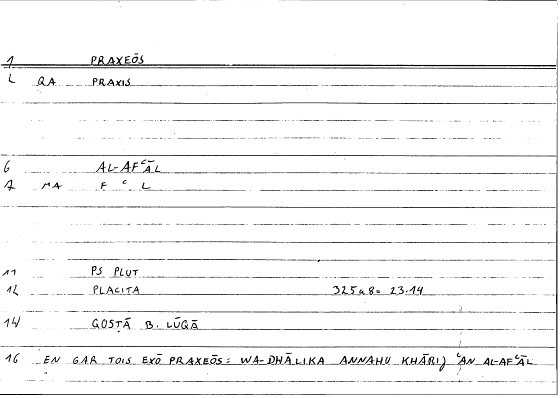 1 PRAXEŌS
2 QA PRAXIS
6 AL-AFʿĀL
7 MA F ʿ L
11 PS PLUT
12 PLACITA 325a8= 23.14
14 QOSṬĀ B. LŪQĀ
16 EN GAR TOIS EXŌ PRAXEŌS: WA-DHĀLIKA ANNAHU KHĀRIJ ʿAN AL-AFʿĀL